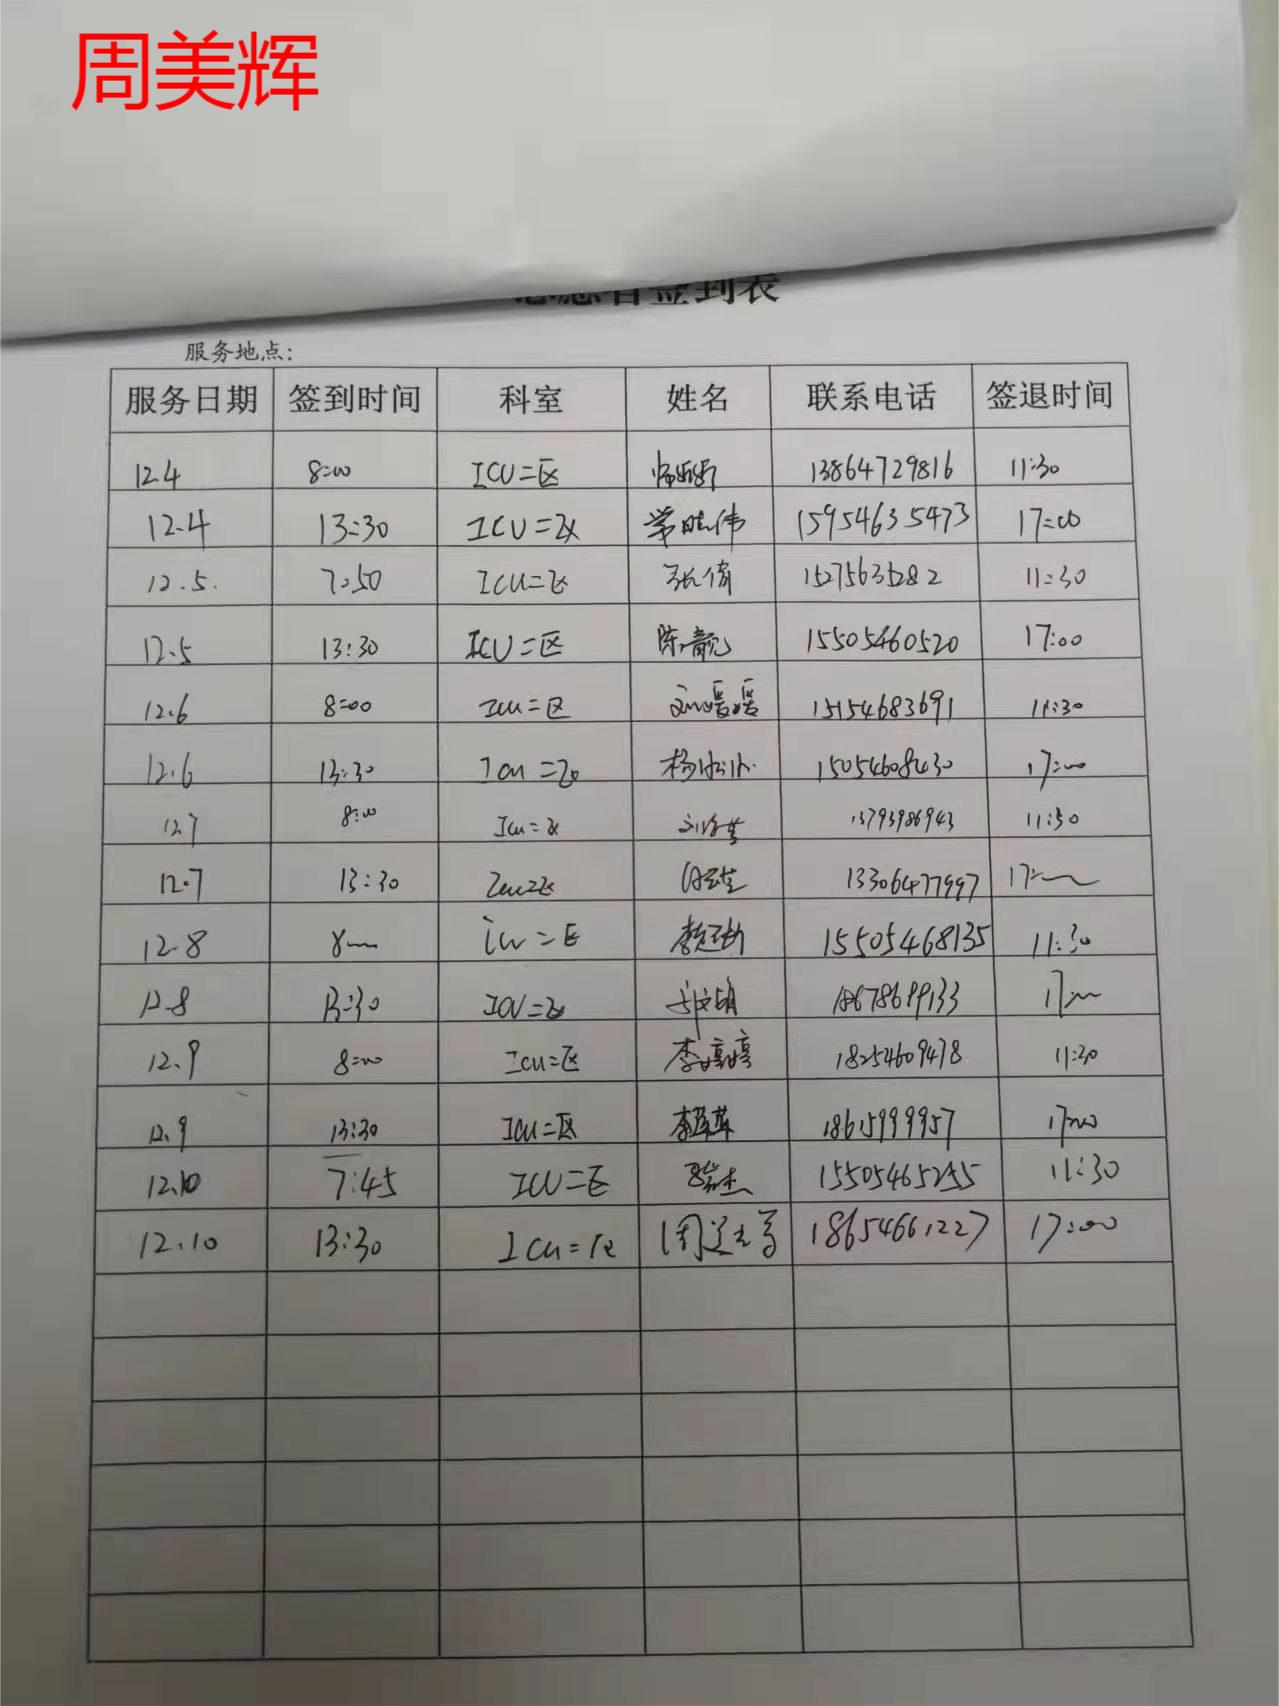 周美辉
志愿者签到表
服务地点：
服务日期 签到时间 科室 姓名 联系电话 签退时间
12.4 8:00 ICU二区 13864729816 11:30
12.4 13:30 ICU二区 常晓伟 15954635473 17:00
12.5. 7:50 ICU二区 张倩 15275635282 11:30
12.5 13:30 ICU二区 陈靓 15505460520 17:00
12.6 8:00 ICU二区 刘媛媛 15154683691 11:30
12.6 13:30 ICU二区 15054608430 17:00
12.7 8:00 ICU二区 13793986943 11:30
12.7 13:30 ICU二区 13306477997 17:
12.8 8 ICU二区 15505468135 11:30
12.8 13:30 ICU二区 18678699133 17
12.9 8:00 ICU二区 李婷婷 18254609478 11:30
12.9 13:30 ICU二区 18615999957 17:00
12.10 7:45 ICU二区 15505465255 11:30
12.10 13:30 ICU二区 18654661227 17:00